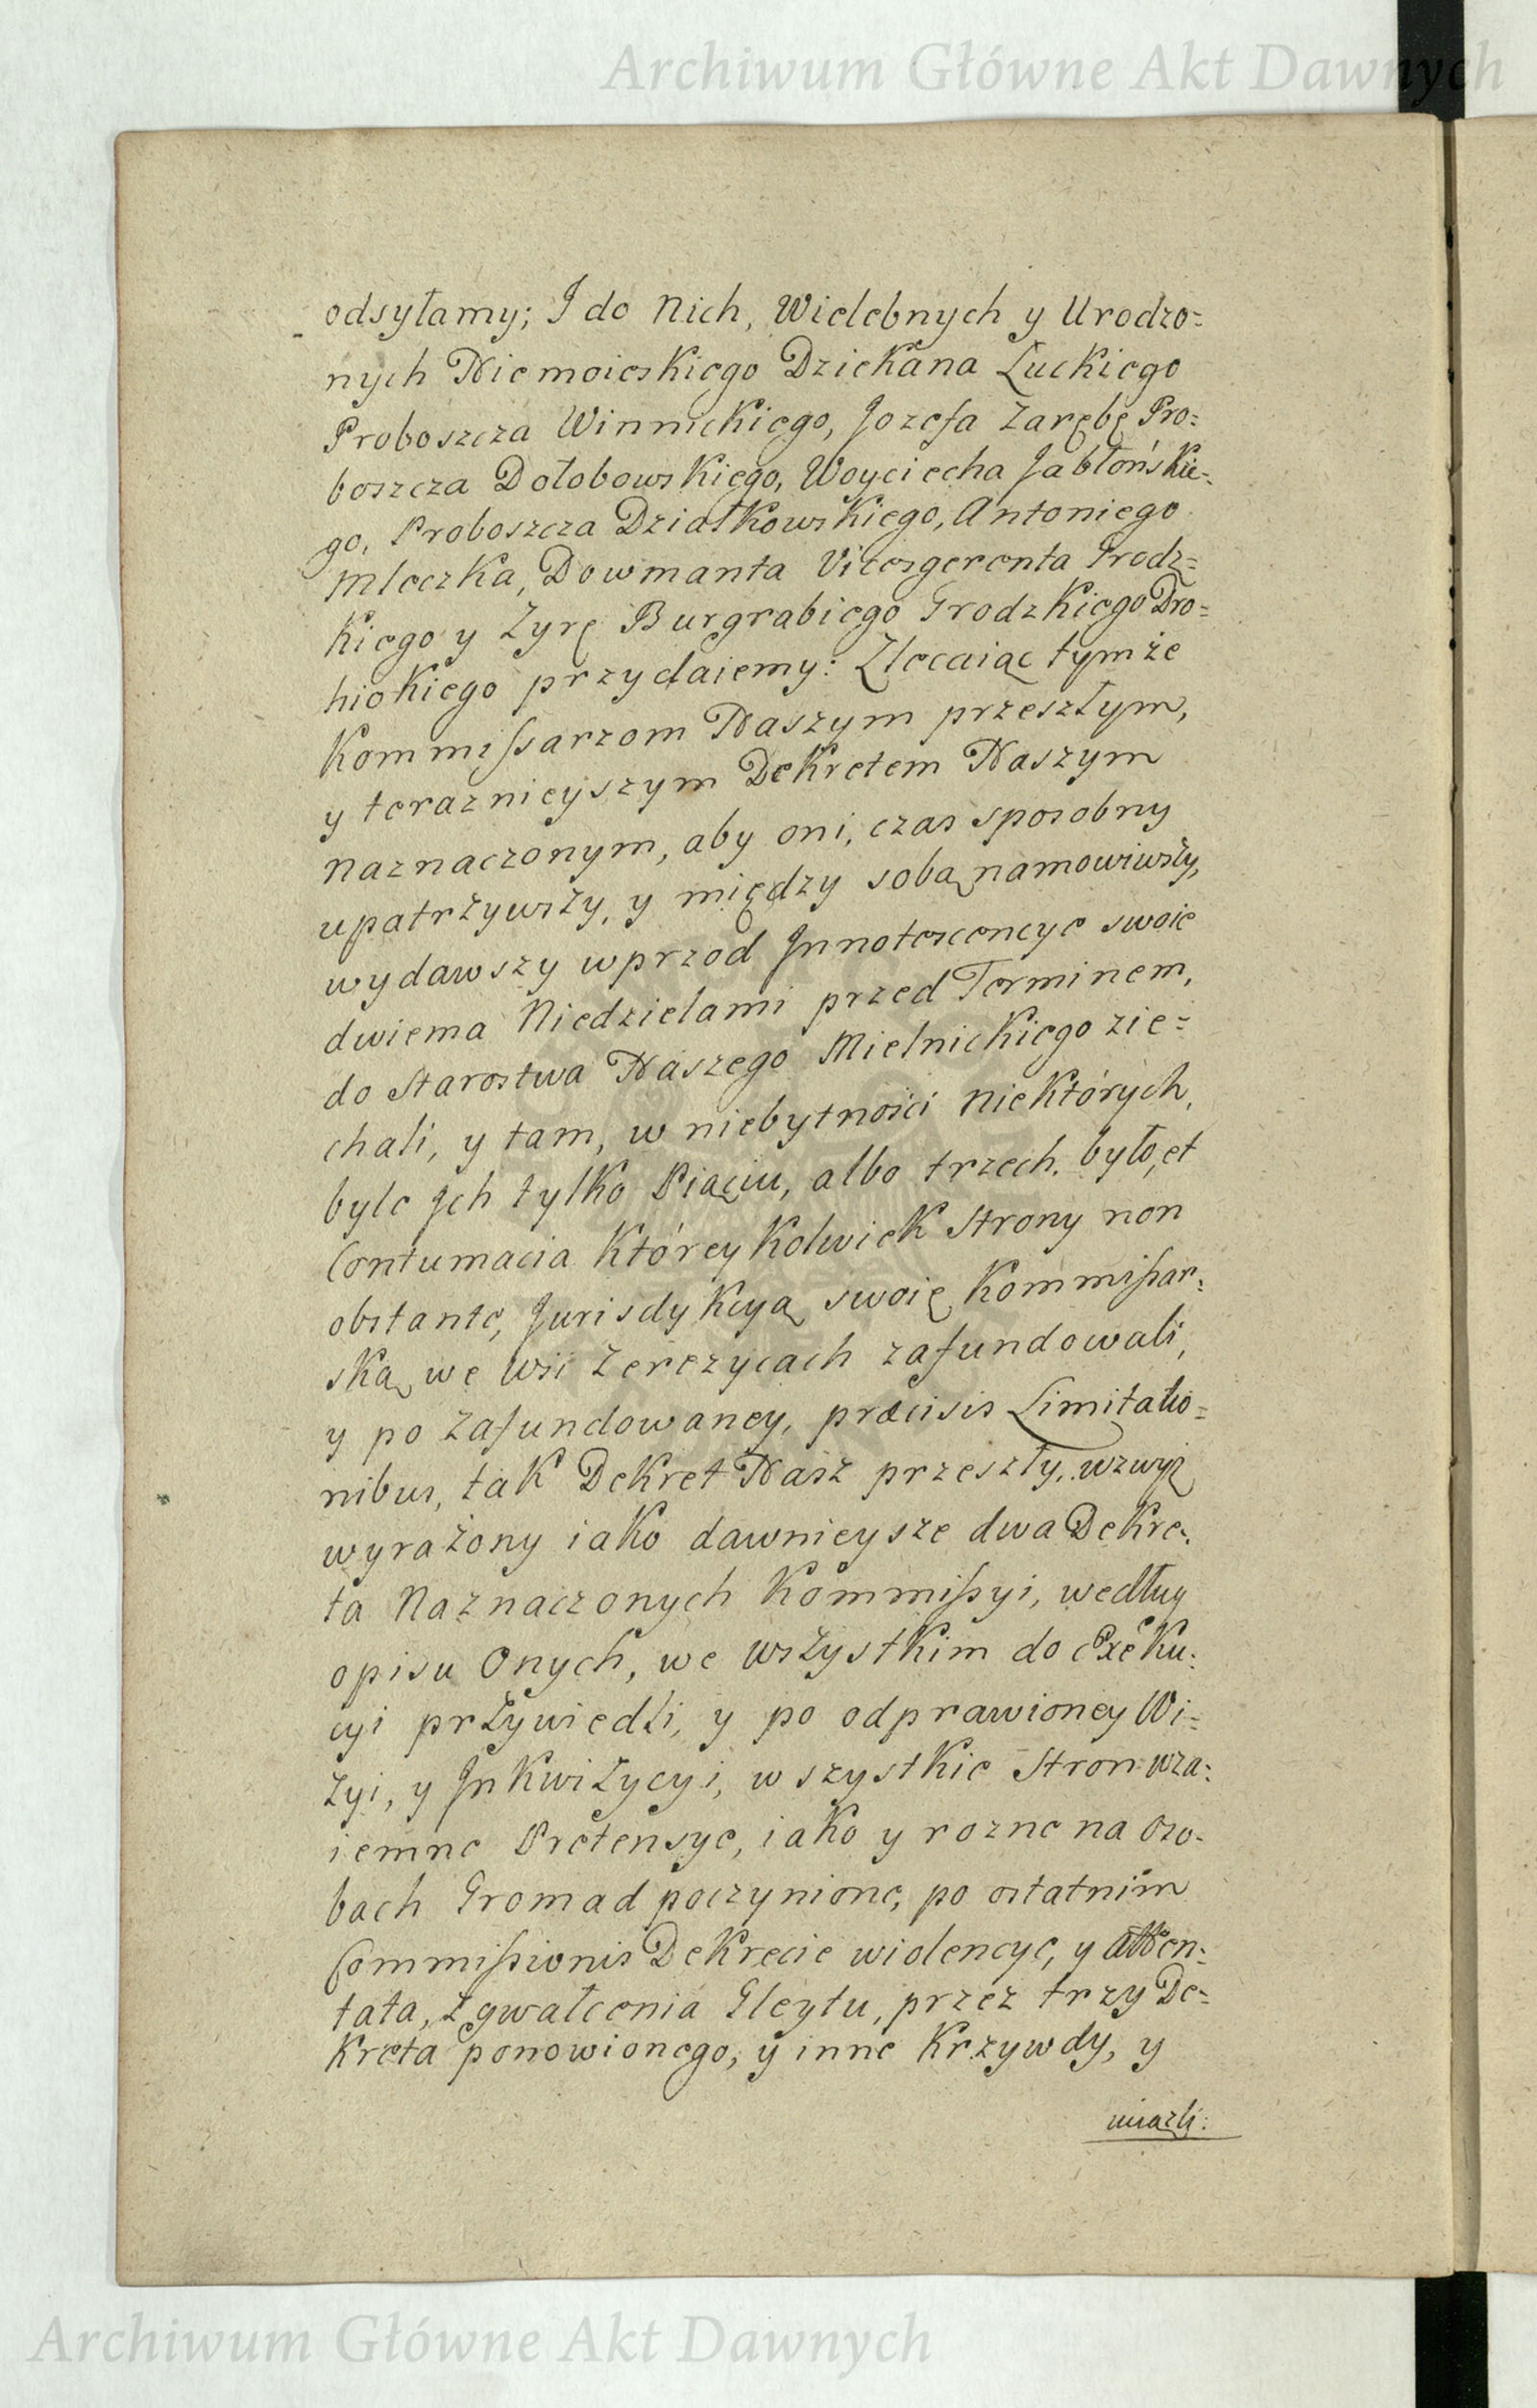 Archiwum Główne Akt Dawnych
odsyłamy; I do Nich, Wielebnych y Urodzo=
nych Niemoieskiego Dziekana Łuckiego
Proboszcza Winnickiego, Jozefa Zarębę Pro=
boszcza Dołobowskiego, Woyciecha Jabłońskie=
go, Proboszcza Dziatkowskiego, Antoniego
Mleczka, Dowmanta Vicesgerenta Grodz=
kiego y Zyrę Burgrabiego Grodzkiego Dro=
hickiego przydaiemy: Zlecaiąc tymże
Kommissarzom Naszym przeszłym,
y teraznieyszym Dekretem Naszym
naznaczonym, aby oni, czas sposobny
upatrżywszy, y między sobą namowiwszy,
wydawszy wprzod Innotescencye swoie
dwiema Niedzielami przed Terminem,
do Starostwa Naszego Mielnickiego zie=
chali, y tam, w niebytności niektórych,
byle Jch tylko Piąciu, albo trzech było, et
Contumacia któreykolwiek Strony non
obstante, Jurisdykcyą swoię Kommissar=
ską we wsi Zerczycach zafundowali,
y po zafundowaney, præcisis Limitatio=
nibus, tak Dekret Nasz przeszły, wzwyż
wyrażony iako dawnieysze dwa Dekre=
ta Naznaczonych Kommissyi, według
opisu Onych, we wszystkim do Exeku=
cyi prżywiedli, y po odprawioney Wi=
zyi, y Jnkwizycyi, wszystkie Stron wza=
iemne Pretensye, iako y rozne na Oso=
bach Gromad poczynione, po ostatnim
Commissionis Dekrecie wiolencye, y atten=
tata, zgwałcenia Gleytu, przez trzy De=
kreta ponowionego, y inne Krzywdy, y
Archiwum Główne Akt Dawnych